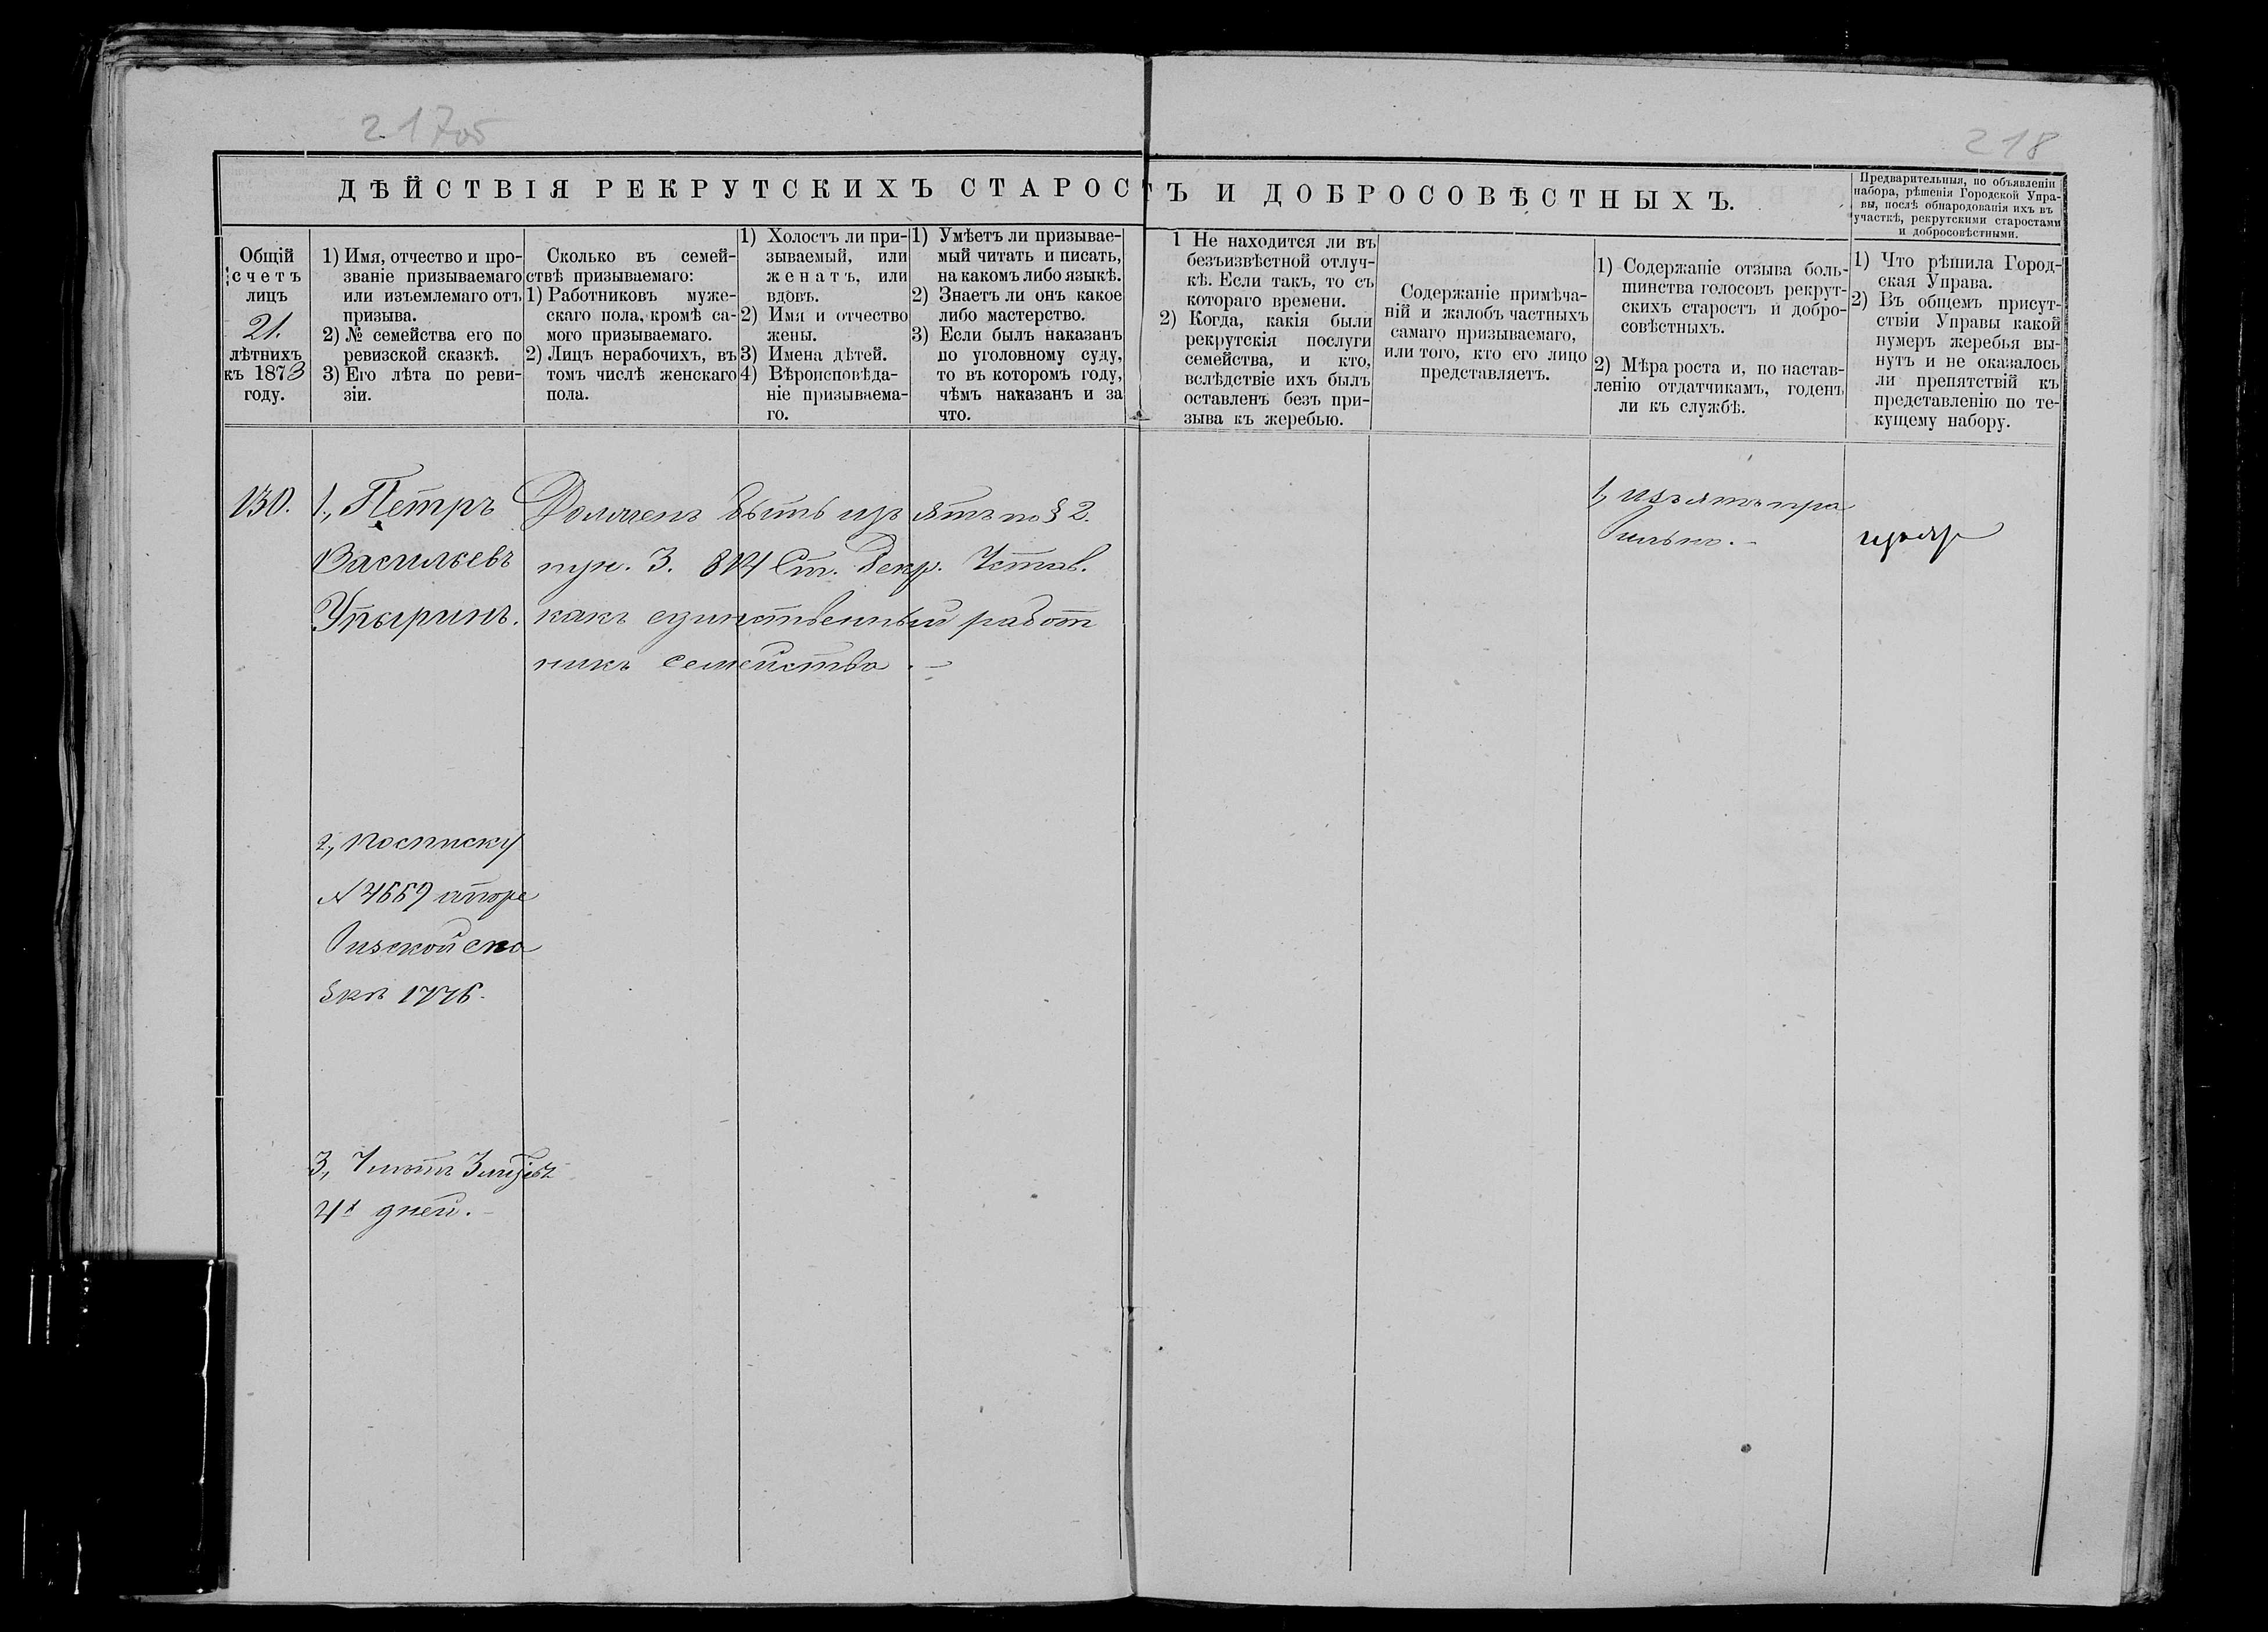 217об
218
ДѢЙСТВІЯ РЕКРУТСКИХЪ СТАРОСТЪ И ДОБРОСОВѢСТНЫХЪ.
Предварительныя, по объявленіи
набора, рѣшенія Городской Упра-
вы, послѣ обнародованія ихъ въ
участкѣ, рекрутскими старостами
и добросовѣстными.
Общій
счетъ
лицъ
21.
лѣтнихъ
къ 1873
году.
1) Имя, отчество и про-
званіе призываемаго
или изъемлемаго отъ
призыва.
2) № семейства его по
ревизской сказкѣ.
3) Его лѣта по реви-
зіи.
Сколько въ семей-
ствѣ призываемаго:
1) Работниковъ муже-
скаго пола, кромѣ са-
мого призываемаго.
2) Лицъ нерабочихъ, въ
томъ числѣ женскаго
пола.
1) Холостъ ли при-
зываемый, или
женатъ, или
вдовъ.
2) Имя и отчество
жены.
3) Имена дѣтей.
4) Вѣроисповѣда-
ніе призываема-
го.
1) Умѣетъ ли призывае-
мый читать и писать,
на какомъ либо языкѣ.
2) Знаетъ ли онъ какое
либо мастерство.
3) Если былъ наказанъ
по уголовному суду,
то въ которомъ году,
чѣмъ наказанъ и за
что.
1 Не находится ли въ
безъизвѣстной отлуч-
кѣ. Если такъ, то съ
котораго времени.
2) Когда, какія были
рекрутскія послуги
семейства, и кто,
вслѣдствіе ихъ былъ
оставленъ безъ при-
зыва къ жеребью.
Содержаніе примѣча-
ній и жалобъ частныхъ
самаго призываемаго,
или того, кто его лицо
представляетъ.
1) Содержаніе отзыва боль-
шинства голосовъ рекрут-
скихъ старостъ и добро-
совѣстныхъ.
2) Мѣра роста и, по настав-
ленію отдатчикамъ, годенъ
ли къ службѣ.
1) Что рѣшила Город-
ская Управа.
2) Въ общемъ присут-
ствіи Управы какой
нумеръ жеребья вы-
нутъ и не оказалось
ли препятствій къ
представленію по те-
кущему набору.
130.
1., Петръ
Васильевъ
Упыринъ.
Долженъ быть изъятъ по § 2.
пун. 3. 814 Ст. Рекр. Устав.
какъ единственный работ
никъ семейства. —
1, изъятъ пра
вильно. —
2., по списку
№ 4669 а по ре
визской ска
зкѣ 1776.
3., 7 лѣтъ 3 мѣсяц
дней. —